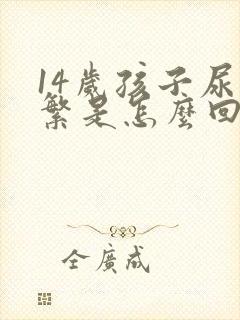 14歲孩子尿
繁是怎麼回
仝廣成